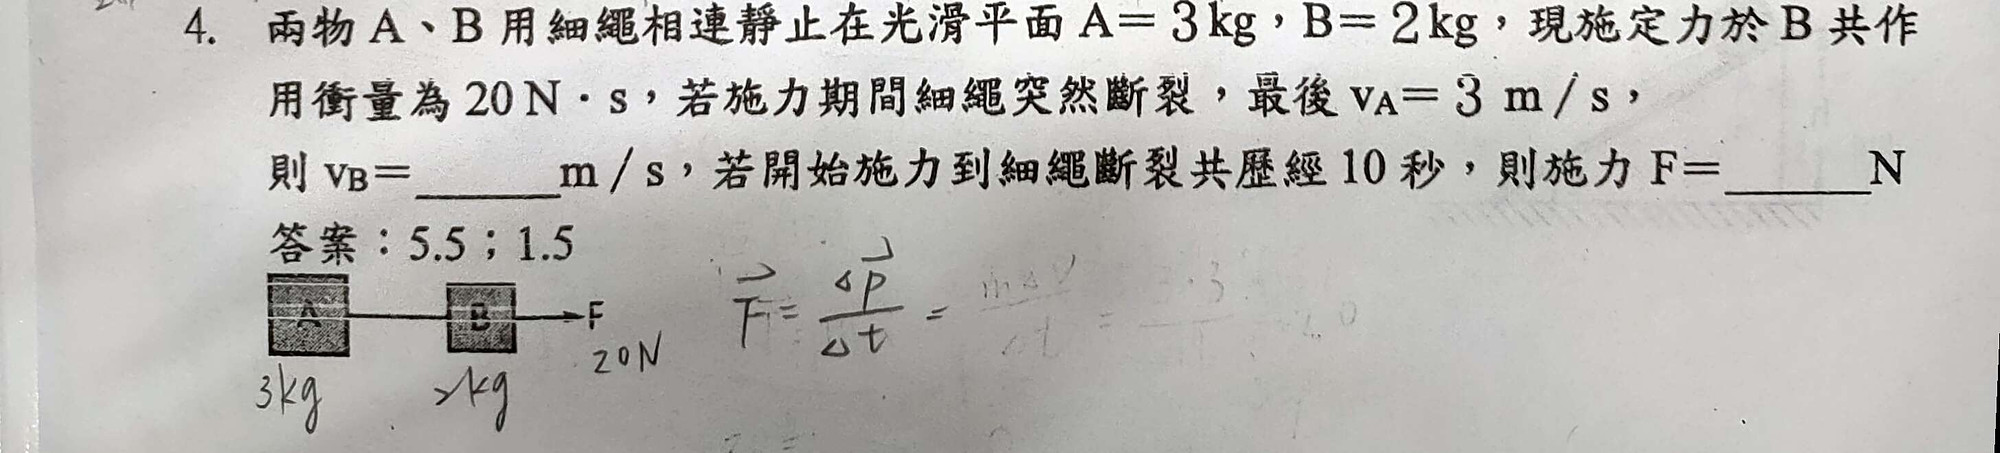 4. 兩物 A、B 用細繩相連靜止在光滑平面 A=3kg，B=2kg，現施定力於 B 共作
用衝量為 20 N·s，若施力期間細繩突然斷裂，最後 vA=3 m/s，
則 vB=______m/s，若開始施力到細繩斷裂共歷經 10 秒，則施力 F=______N
答案：5.5；1.5
A B F
20N
3kg 2kg
F = Δp/Δt =